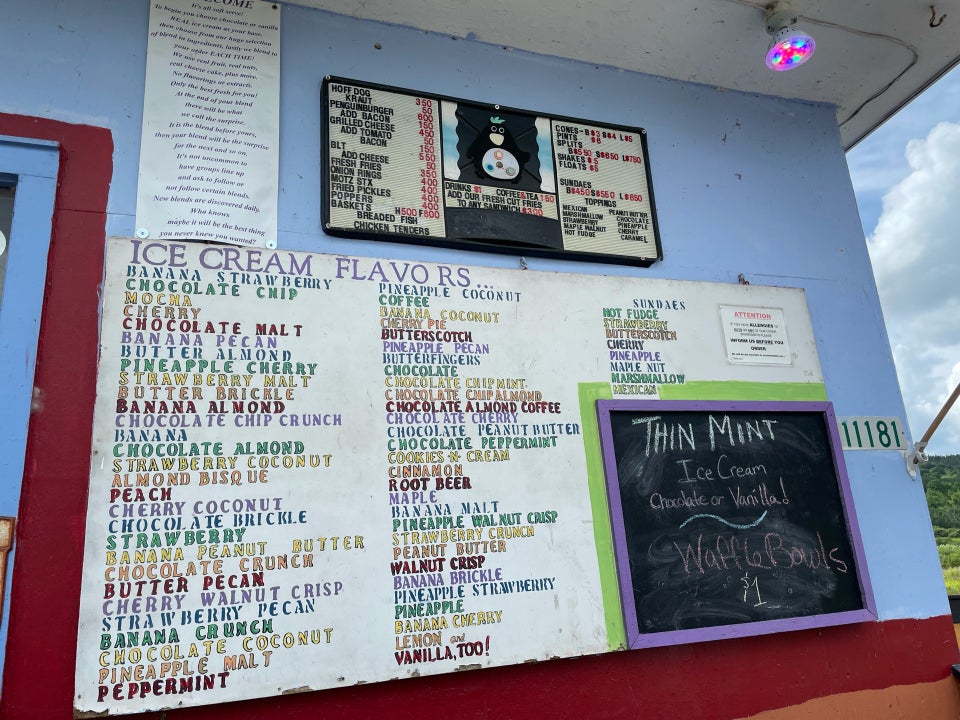 WELCOME
It's all soft serve!
To begin you choose chocolate or vanilla
REAL ice cream as your base,
then choose from our huge selection
of blend in ingredients, lastly we blend to
your order EACH TIME!
We use real fruit, real nuts,
real cheese cake, plus more.
No flavorings or extracts.
Only the best fresh for you!
At the end of your blend
there will be what
we call the surprise.
It is the blend before yours,
then your blend will be the surprise
for the next and so on.
It's not uncommon to
have groups line up
and ask to follow or
not follow certain blends.
New blends are discovered daily.
Who knows
maybe it will be the best thing
you never knew you wanted?
HOFF DOG 350
KRAUT 50
PENGUINBURGER 600
ADD BACON 150
GRILLED CHEESE 450
ADD TOMATO 50
BACON 150
BLT 550
ADD CHEESE 50
FRESH FRIES 350
ONION RINGS 400
MOTZ STX 400
FRIED PICKLES 400
POPPERS 400
BASKETS H500 F800
BREADED FISH
CHICKEN TENDERS
DRINKS $1 COFFEE&TEA 150
ADD OUR FRESH CUT FRIES
TO ANY SANDWICH $300
CONES-B$3 S$4 L$5
PINTS $6
SPLITS
B$550 S$650 L$750
SHAKES $5
FLOATS $5
SUNDAES
B$450 S$550 L$650
TOPPINGS
MEXICAN PEANUT BUTTER
MARSHMALLOW CHOCOLATE
STRAWBERRY PINEAPPLE
MAPLE WALNUT CHERRY
HOT FUDGE CARAMEL
ICE CREAM FLAVORS...
BANANA STRAWBERRY
CHOCOLATE CHIP
MOCHA
CHERRY
CHOCOLATE MALT
BANANA PECAN
BUTTER ALMOND
PINEAPPLE CHERRY
STRAWBERRY MALT
BUTTER BRICKLE
BANANA ALMOND
CHOCOLATE CHIP CRUNCH
BANANA
CHOCOLATE ALMOND
STRAWBERRY COCONUT
ALMOND BISQUE
PEACH
CHERRY COCONUT
CHOCOLATE BRICKLE
STRAWBERRY
BANANA PEANUT BUTTER
CHOCOLATE CRUNCH
BUTTER PECAN
CHERRY WALNUT CRISP
STRAWBERRY PECAN
BANANA CRUNCH
CHOCOLATE COCONUT
PINEAPPLE MALT
PEPPERMINT
PINEAPPLE COCONUT
COFFEE
BANANA COCONUT
CHERRY PIE
BUTTERSCOTCH
PINEAPPLE PECAN
BUTTERFINGERS
CHOCOLATE
CHOCOLATE CHIP MINT
CHOCOLATE CHIP ALMOND
CHOCOLATE ALMOND COFFEE
CHOCOLATE CHERRY
CHOCOLATE PEANUT BUTTER
CHOCOLATE PEPPERMINT
COOKIES-N-CREAM
CINNAMON
ROOT BEER
MAPLE
BANANA MALT
PINEAPPLE WALNUT CRISP
STRAWBERRY CRUNCH
PEANUT BUTTER
WALNUT CRISP
BANANA BRICKLE
PINEAPPLE STRAWBERRY
PINEAPPLE
BANANA CHERRY
LEMON and
VANILLA, TOO!
SUNDAES
HOT FUDGE
STRAWBERRY
BUTTERSCOTCH
CHERRY
PINEAPPLE
MAPLE NUT
MARSHMALLOW
MEXICAN
ATTENTION
IF YOU HAVE ALLERGIES TO
INFORM US BEFORE YOU
ORDER
THIN MINT
Ice Cream
Chocolate or Vanilla!
Waffle Bowls
$1
11181